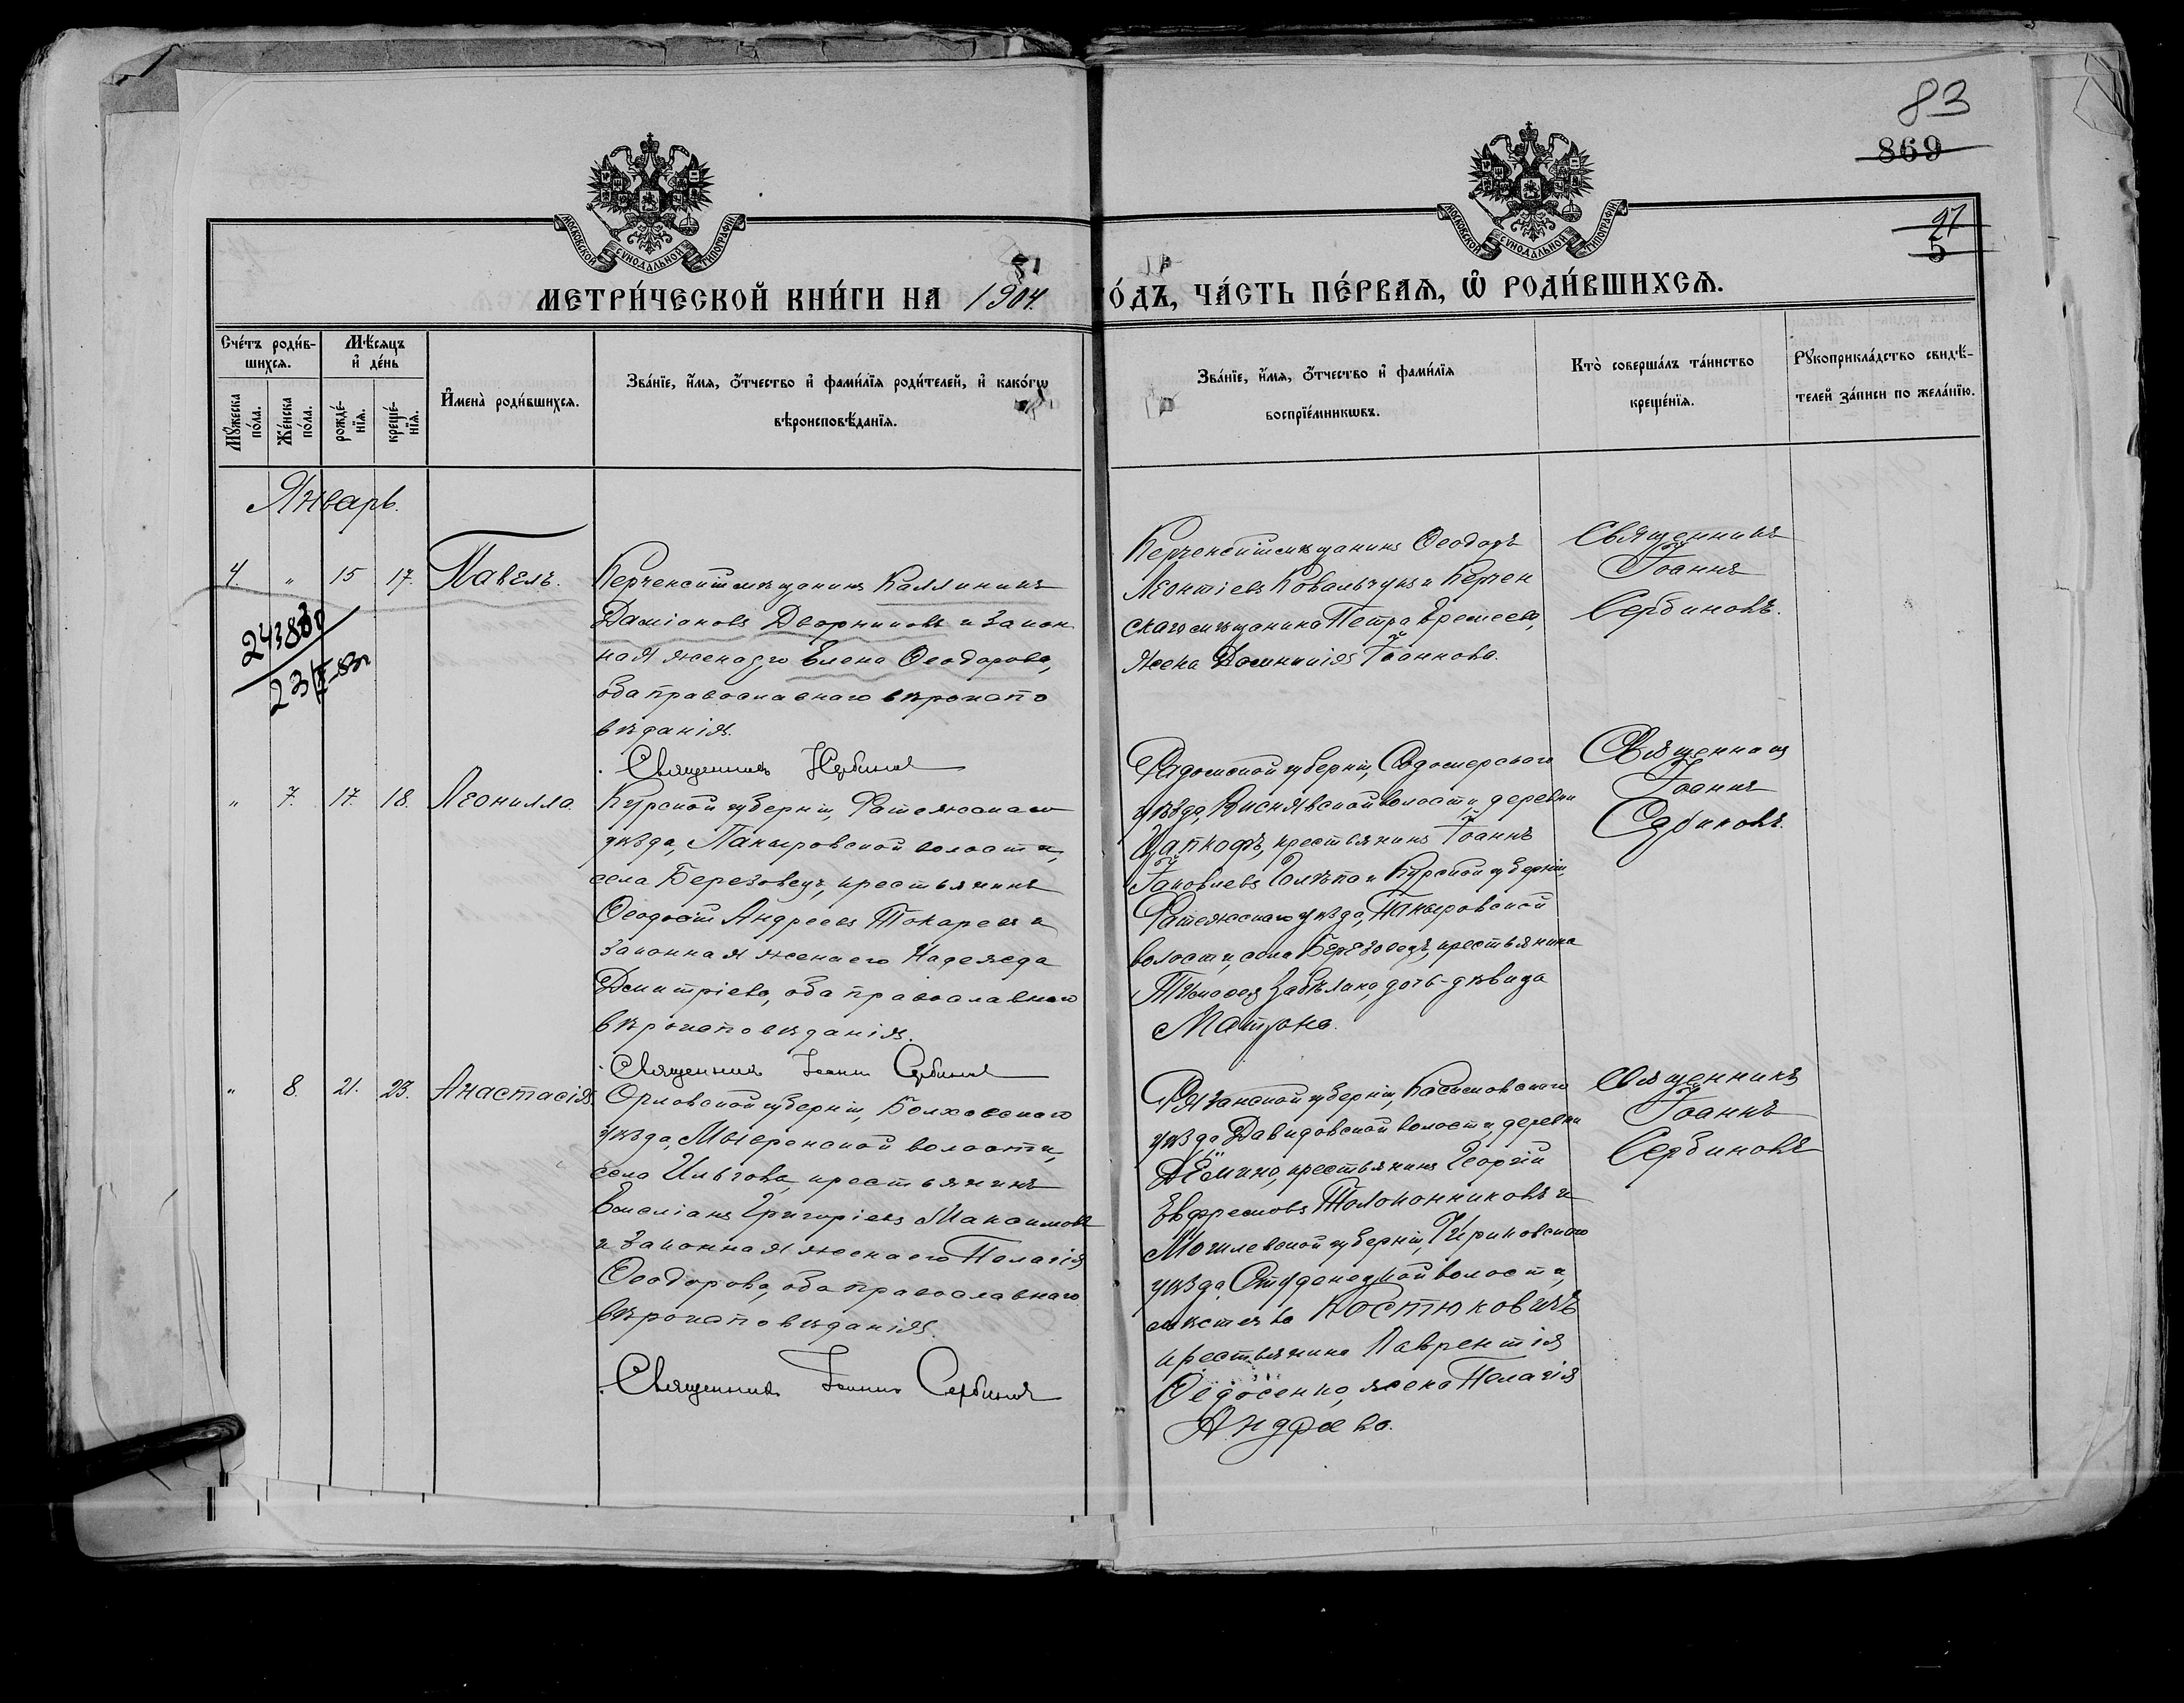 83
869
27
5
МОСКОВСКОЙ СѴНОДАЛЬНОЙ ТИПОГРАФІИ
МОСКОВСКОЙ СѴНОДАЛЬНОЙ ТИПОГРАФІИ
МЕТРИ́ЧЕСКОЙ КНИ́ГИ НА 1904. ГО́ДЪ, ЧА́СТЬ ПЕ́РВАѦ, Ѡ҆ РОДИ́ВШИХСѦ.
Сче́тъ роди́в-
шихсѧ.
Мꙋ́жеска по́ла.
Же́нска по́ла.
Мѣ́сѧцъ и҆ де́нь
рожде́-нїѧ.
креще́-нїѧ.
И҆мена̀ роди́вшихсѧ.
Зва́нїе, и҆́мѧ, ѻ҆́тчество и҆ фами́лїѧ роди́телей, и҆ како́гѡ
вѣроисповѣ́данїѧ.
Зва́нїе, и҆́мѧ, ѻ҆́тчество и҆ фами́лїѧ
воспрїе́мникѡвъ.
Кто̀ соверша́лъ та́инство
креще́нїѧ.
Рꙋкоприкла́дство свидѣ́-
телей за́писи по жела́нїю.
Январь.
4. " 15 17. Павелъ.
Керченскій мѣщанинъ Каллиникъ
Даміановъ Дворниковъ и закон
ная жена его Елена Ѳеодорова,
оба православнаго вѣроиспо
вѣданія.
Священникъ Сербиновъ
Керченскій мѣщанинъ Ѳеодоръ
Леонтіевъ Ковальчукъ и Керчен
скаго мѣщанина Петра Еремеева,
жена Домникія Іоаннова.
Священникъ
Іоаннъ
Сербиновъ.
" 7. 17. 18. Леонилла.
Курской губерніи, Фатежскаго
уѣзда, Паныровской волости,
села Березовецъ, крестьянинъ
Ѳеодосій Андреевъ Токаревъ и
законная жена его Надежда
Димитріева, оба православнаго
вѣроисповѣданія.
Священникъ Іоаннъ Сербиновъ
Радомской губерніи, Содомерскаго
уѣзда, Виснявской волости, деревни
крестьянинъ Іоаннъ
Іаковлевъ и Курской губерніи
Фатежскаго уѣзда, Паныровской
волости, села Березовецъ, крестьянина
дочь-дѣвица
Матрона.
Священникъ
Іоаннъ
Сербиновъ.
" 8. 21. 23. Анастасія.
Орловской губерніи, Болховскаго
уѣзда, волости,
села Ильгова, крестьянинъ
Емеліанъ Григоріевъ Максимовъ
и законная жена его Пелагія
Ѳеодорова, оба православнаго
вѣроисповѣданія.
Священникъ Іоаннъ Сербиновъ
Рязанской губерніи, Касимовскаго
уѣзда, Давидовской волости, деревни
Дёмино, крестьянинъ Георгій
Евфремовъ Толоконниковъ и
Могилевской губерніи,
уѣзда, Студенецкой волости,
мѣстечка Костюковичъ
крестьянина Лаврентія
Ѳедосенко, жена Пелагія
Андреева.
Священникъ
Іоаннъ
Сербиновъ